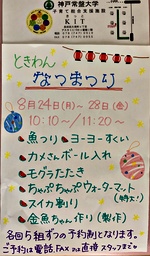 神戸常盤大学
子育て総合支援施設
KIT
ときわん
なつまつり
8月24日(月)～28日(金)
10:10～/11:20～
・魚つり・ヨーヨーすくい
・カメさんボール入れ
・モグラたたき
・ちゃぷちゃぷウォーターマット(特大!)
・スイカ割り
・金魚ちゃん作り(製作)
各回5組ずつの予約制となります。
ご予約は電話、FAX又は直接スタッフまで